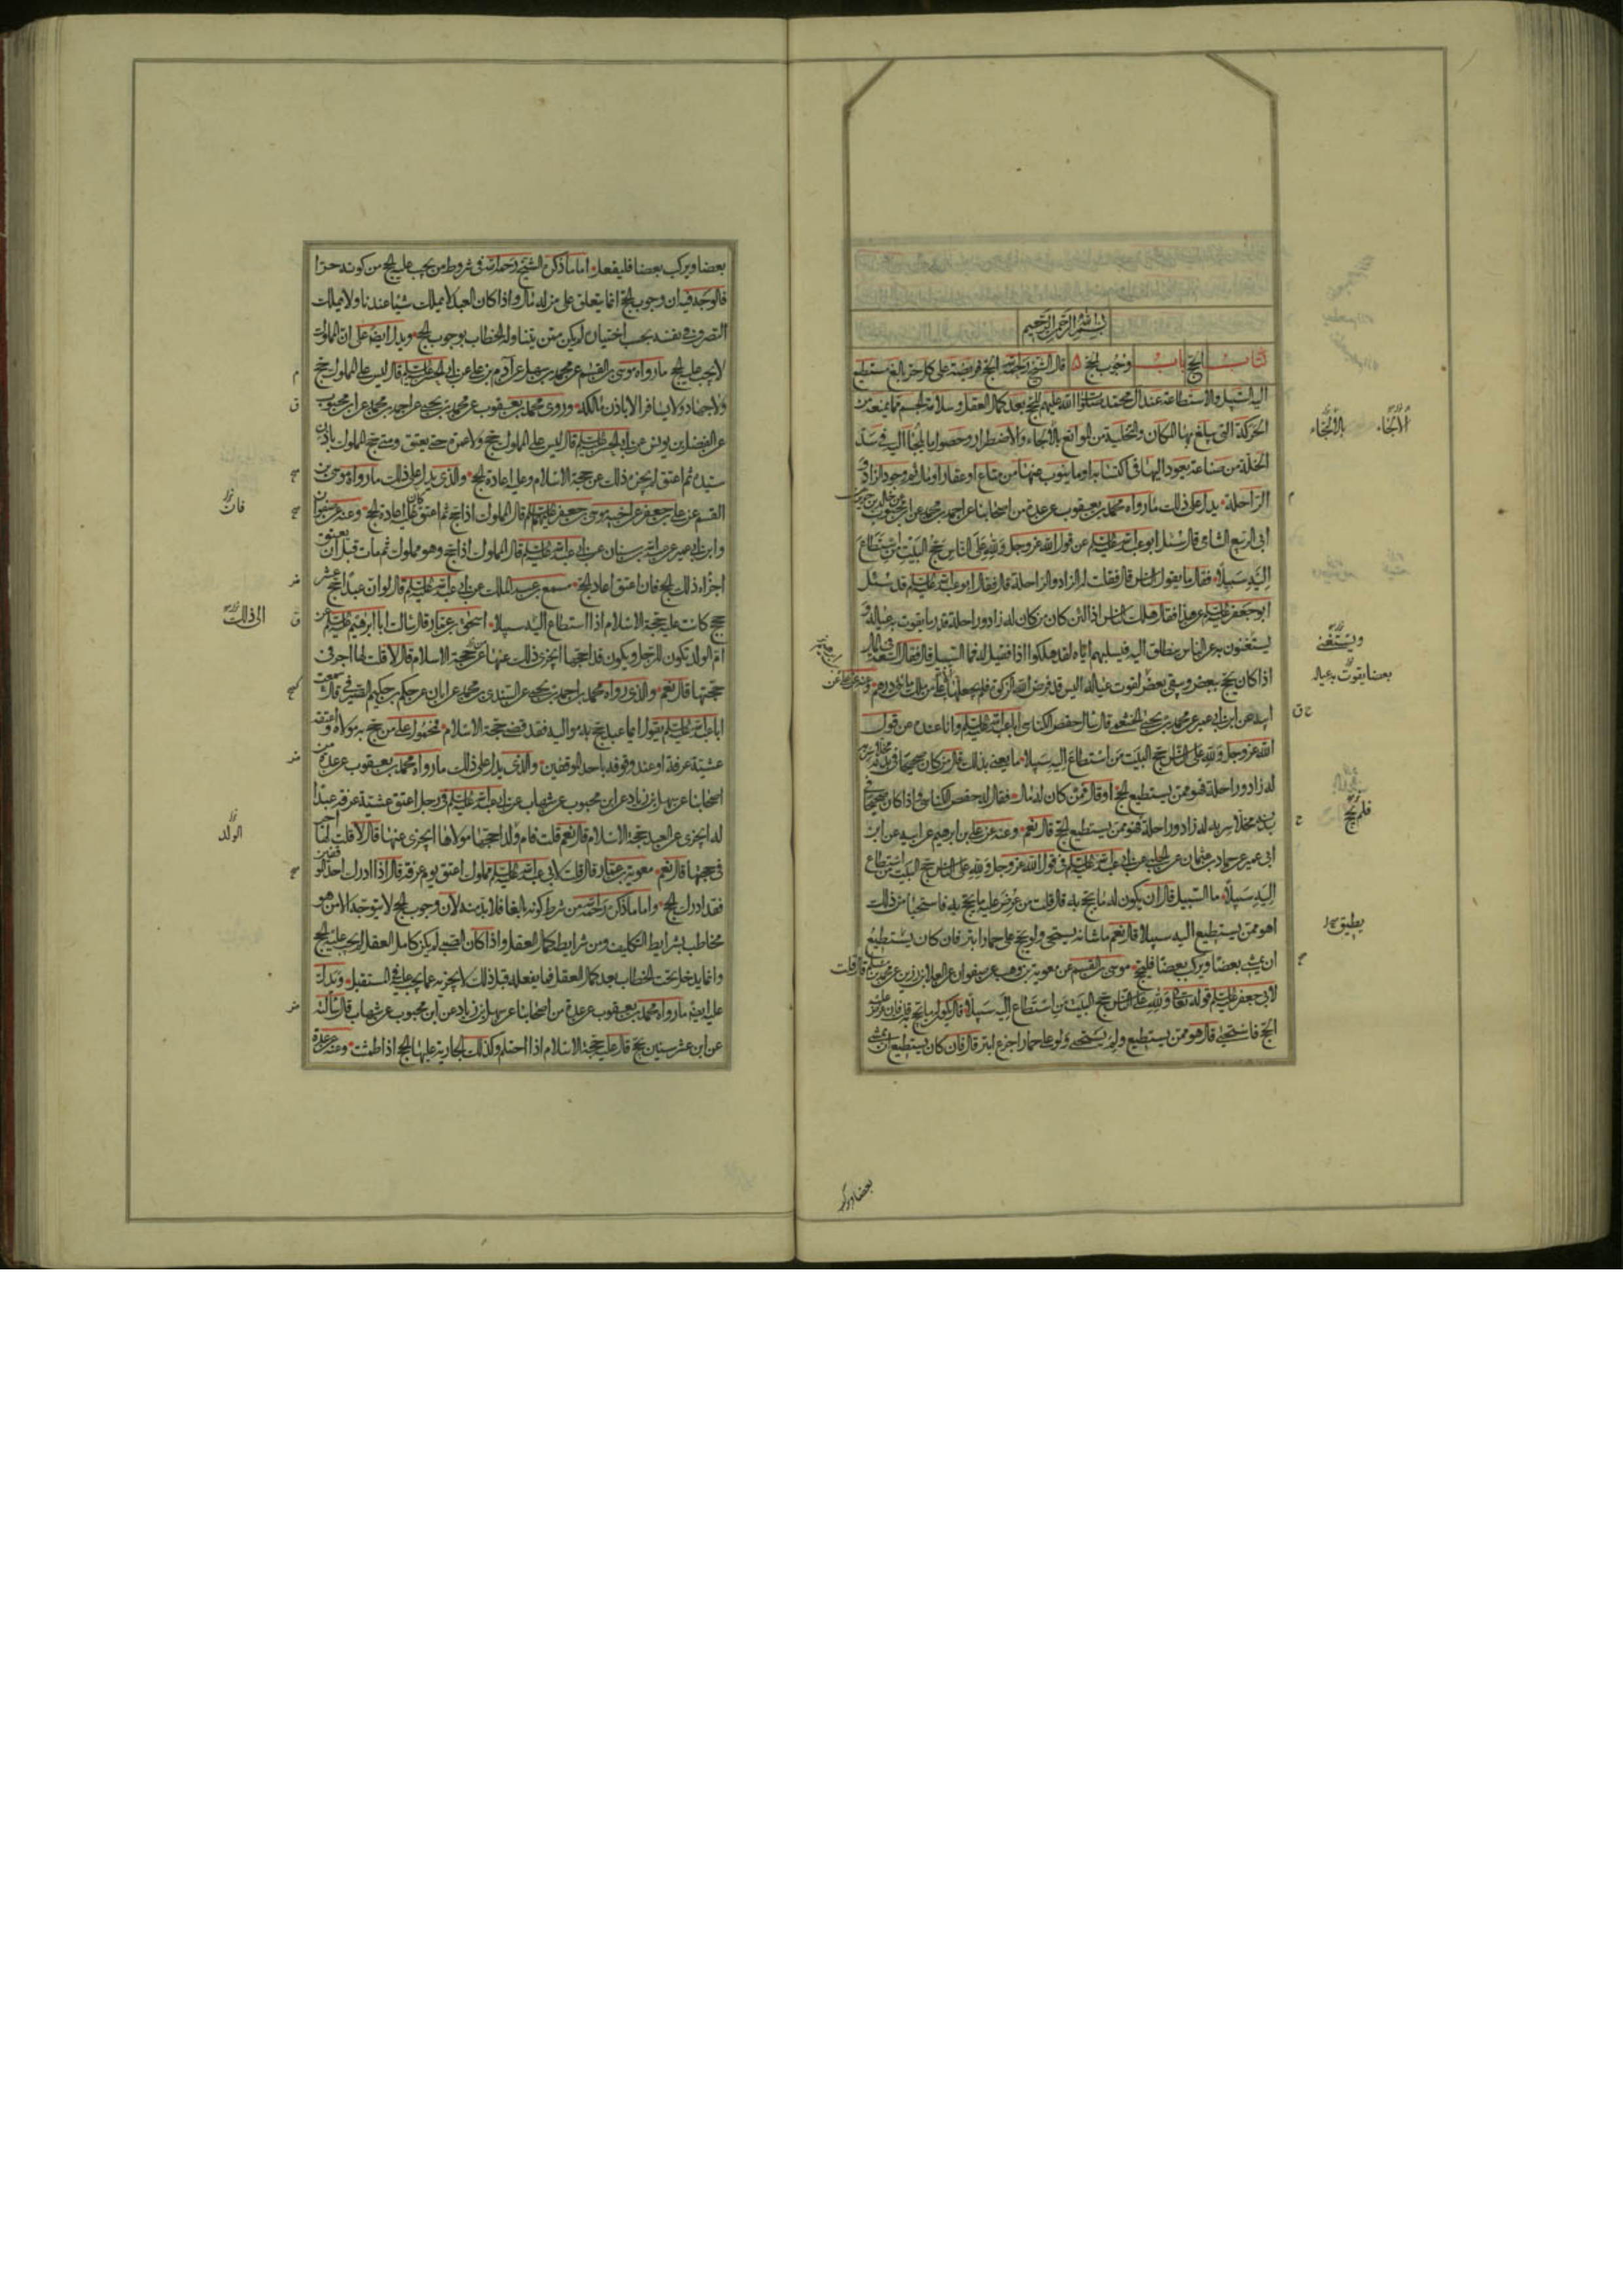 بسم الله الرحمن الرحیم
کتاب الحج باب وجوب الحج قال الشیخ رحمه الله الحج فریضة علی کل حر بالغ مستطیع
الیه السبیل والاستطاعة عند آل محمد صلوات الله علیهم للحج بعد کمال العقل وسلامة الجسم مما یمنعه من
الحرکة التی یبلغ بها المکان والتخلیة من الموانع بالالجاء والاضطرار وحصول ما یلجأ الیه فی سد
الخلة من صناعة یعود الیها فی اکتسابه او ما ینوب عنها من متاع او عقار او مال ثم وجود الزاد و
الراحلة یدل علی ذلک ما رواه محمد بن یعقوب عن عدة من اصحابنا عن احمد بن محمد عن ابن محبوب عن خالد بن جریر
ابی الربیع الشامی قال سئل ابو عبد الله علیه السلم عن قول الله عز وجل ولله علی الناس حج البیت من استطاع
الیه سبیلا فقال ما یقول الناس قال فقلت له الزاد والراحلة قال فقال ابو عبد الله علیه السلم قد سئل
ابو جعفر علیه السلم عن هذا فقال هلک الناس اذا لئن کان من کان له زاد وراحلة قدر ما یقوت به عیاله و
یستغنون به عن الناس ینطلق الیه فیسلبهم ایاه لقد هلکوا اذا فقیل له فما السبیل قال فقال السعة فی المال
اذا کان یحج ببعض ویبقی بعض لقوت عیاله الیس قد فرض الله الزکوة فلم یجعلها الا علی من یملک مائتی درهم وعنه عن علی عن
ابیه عن ابن ابی عمیر عن محمد بن یحیی الخثعمی قال سال حفص الکناسی ابا عبد الله علیه السلم وانا عنده عن قول
الله عز وجل ولله علی الناس حج البیت من استطاع الیه سبیلا ما یعنی بذلک قال من کان صحیحا فی بدنه مخلا سربه
له زاد وراحلة فهو ممن یستطیع الحج او قال ممن کان له مال فقال له حفص الکناسی واذا کان صحیحا فی
بدنه مخلا سربه له زاد وراحلة فهو ممن یستطیع الحج قال نعم وعنه عن علی بن ابراهیم عن ابیه عن ابن
ابی عمیر عن حماد بن عثمان عن الحلبی عن ابی عبد الله علیه السلم فی قول الله عز وجل ولله علی الناس حج البیت من استطاع
الیه سبیلا ما السبیل قال ان یکون له ما یحج به قال قلت من عرض علیه ما یحج به فاستحیا من ذلک
اهو ممن یستطیع الیه سبیلا قال نعم ما شانه یستحی ولو یحج علی حمار ابتر فان کان یستطیع
ان یمشی بعضا ویرکب بعضا فلیحج موسی بن القسم عن معویة بن وهب عن صفوان عن العلا بن رزین عن محمد بن مسلم قال قلت
لابی جعفر علیه السلم قوله تعالی ولله علی الناس حج البیت من استطاع الیه سبیلا قال یکون له ما یحج به قلت فان عرض علیه
الحج فاستحیی قال هو ممن یستطیع ولم یستحیی ولو علی حمار اجدع ابتر قال فان کان یستطیع ان یمشی
الالجاء
بالالجاء
ویستغنی
بعضا یقوت به عیاله
فلم یحج
یطیق
بعضا ویرکب
بعضا ویرکب بعضا فلیفعل اما ما ذکره الشیخ رحمه الله فی شروط من یجب علیه الحج من کونه حرا
فالوجه فیه ان وجوب الحج انما یتعلق علی من له مال واذا کان العبد لا یملک شیئا عندنا ولا یملک
التصرف فی نفسه بحسب اختیاره لم یکن ممن یتناوله الخطاب بوجوب الحج ویدل ایضا علی ان المملوک
لا یجب علیه الحج ما رواه موسی بن القسم عن محمد بن سهل عن آدم بن علی عن ابی الحسن علیه السلم قال لیس علی المملوک حج
ولا جهاد ولا یسافر الا باذن مالکه وروی محمد بن یعقوب عن محمد بن یحیی عن احمد بن محمد عن ابن محبوب
عن الفضل بن یونس عن ابی الحسن علیه السلم قال لیس علی المملوک حج ولا عمرة حتی یعتق ومتی حج المملوک باذن
سیده ثم اعتق لم یجزه ذلک عن حجة الاسلام وعلیه اعادة الحج والذی یدل علی ذلک ما رواه موسی بن
القسم عن علی بن جعفر عن اخیه موسی بن جعفر علیهما السلم قال المملوک اذا حج ثم اعتق کان علیه اعادة الحج وعنه عن صفوان
وابن ابی عمیر عن عبد الله بن سنان عن ابی عبد الله علیه السلم قال المملوک اذا حج وهو مملوک ثم مات قبل ان یعتق
اجزاه ذلک الحج فان اعتق اعاد الحج مسمع بن عبد الملک عن ابی عبد الله علیه السلم قال لو ان عبدا حج عشر
حجج کانت علیه حجة الاسلام اذا استطاع الیه سبیلا اسحق بن عمار قال سالت ابا ابراهیم علیه السلم عن
ام الولد تکون للرجل ویکون قد احجها ایجزی ذلک عنها عن حجة الاسلام قال لا قلت لها اجر فی
حجتها قال نعم والذی رواه محمد بن احمد بن یحیی عن السندی بن محمد عن ابان عن حکم بن حکیم الصیرفی قال سمعت
ابا عبد الله علیه السلم یقول ایما عبد حج به موالیه فقد قضی حجة الاسلام فمحمول علی من حج به مولاه واعتقه
عشیة عرفة او عند وقوفه باحد الموقفین والذی یدل علی ذلک ما رواه محمد بن یعقوب عن عدة من
اصحابنا عن سهل بن زیاد عن ابن محبوب عن شهاب عن ابی عبد الله علیه السلم فی رجل اعتق عشیة عرفة عبدا
له ایجزی عن العبد حجة الاسلام قال نعم قلت فام ولد احجها مولاها ایجزی عنها قال لا قلت لها اجر
فی حجتها قال نعم معویة بن عمار قال قلت لابی عبد الله علیه السلم مملوک اعتق یوم عرفة قال اذا ادرک احد الموقفین
فقد ادرک الحج واما ما ذکره رحمه الله من شرط کونه بالغا فلا بد منه لان وجوب الحج لا یتوجه الا من هو
مخاطب بشرایط التکلیف ومن شرایطه کمال العقل واذا کان الصبی لم یکن کامل العقل لم یجب علیه الحج
وانما یدخل تحت الخطاب بعد کمال العقل فما یفعله قبل ذلک لا یجزیه عما یجب علیه فی المستقبل ویدل
علیه ایضا ما رواه محمد بن یعقوب عن عدة من اصحابنا عن سهل بن زیاد عن ابن محبوب عن شهاب قال سالته
عن ابن عشر سنین یحج قال علیه حجة الاسلام اذا احتلم وکذلک الجاریة علیها الحج اذا طمثت وعنه عن عدة
فان
الی ذلک
الولد